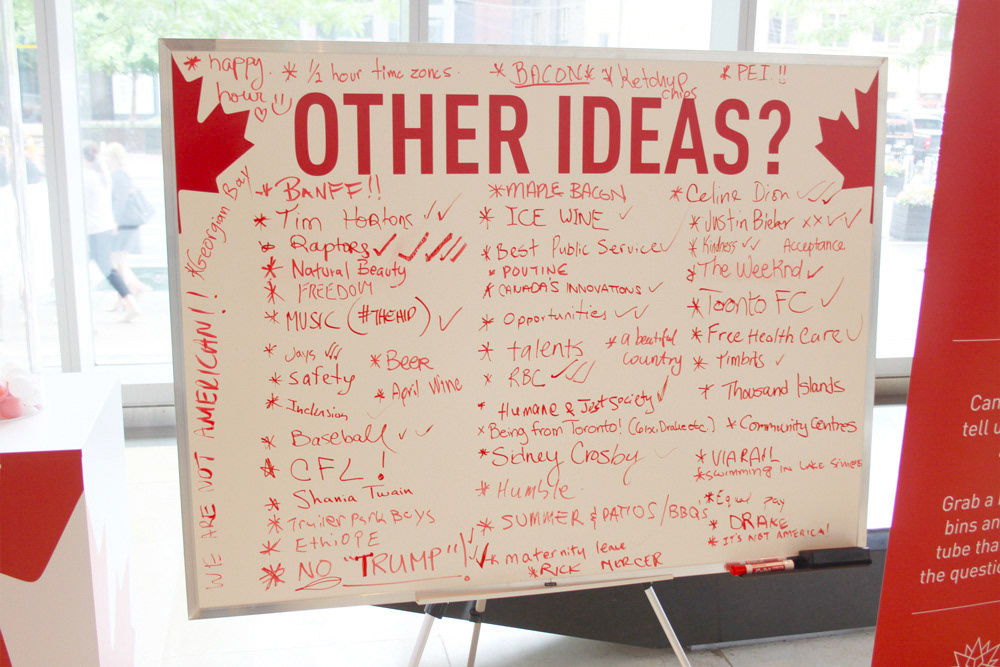 * happy
hour
* 1/2 hour time zones.
* BACON *
* Ketchup
chips
* PEI !!
OTHER IDEAS?
* Georgian Bay
WE ARE NOT AMERICAN!!
* BANFF!!
* Tim Hortons
* Raptors
* Natural Beauty
* FREEDOM
* MUSIC (#THEHIP)
* Jays
* Beer
* Safety
* April Wine
* Inclusion
* Baseball
* CFL!
* Shania Twain
* Trailer Park Boys
* EthiOPE
* NO "TRUMP"!
* MAPLE BACON
* ICE WINE
* Best Public Service
* POUTINE
* CANADA'S INNOVATIONS
* Opportunities
* talents
* a beatiful
country
* RBC
* Humane & Just Society
* Being from Toronto! (6ix, Drake etc.)
* Sidney Crosby
* Humble.
* SUMMER & PATIOS/BBQ's
* maternity leave
* RICK MERCER
* Celine Dion
* Justin Bieber xx
* Kindness
Acceptance
* The Weeknd
* Toronto FC
* Free Health Care
* Timbits
* Thousand Islands
* Community Centres
* VIA RAIL
* SWIMMING IN LAKE SIMCOE
* Equal pay
* DRAKE
* IT'S NOT AMERICA!
Can
tell u
Grab a
bins an
tube tha
the questio